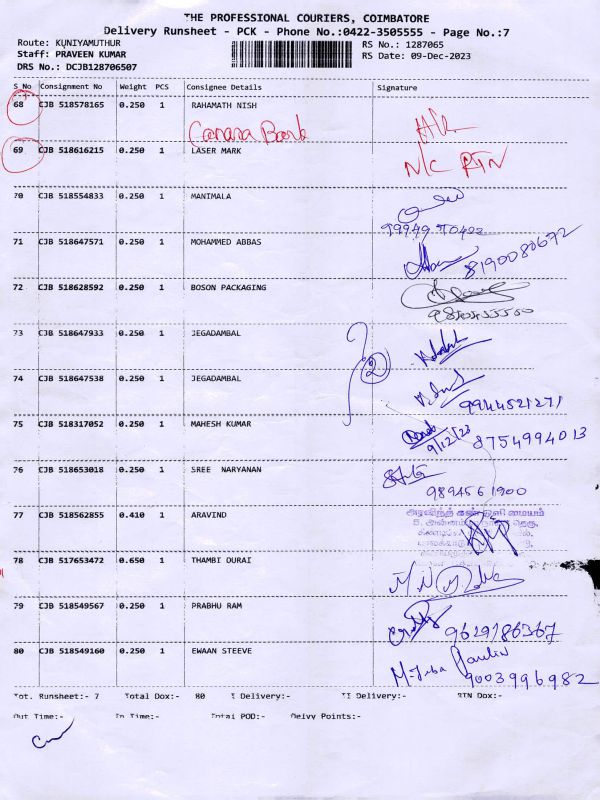 THE PROFESSIONAL COURIERS, COIMBATORE
Delivery Runsheet - PCK - Phone No.:0422-3505555 - Page No.:7
Route: KUNIYAMUTHUR
RS No.: 1287065
Staff: PRAVEEN KUMAR
RS Date: 09-Dec-2023
DRS No.: DCJB128706507
S_No Consignment No Weight PCS Consignee Details Signature
68 CJB 518578165 0.250 1 RAHAMATH NISH
Canara Bank
69 CJB 518616215 0.250 1 LASER MARK N/C RTN
70 CJB 518554833 0.250 1 MANIMALA
71 CJB 518647571 0.250 1 MOHAMMED ABBAS 8190080672
72 CJB 518628592 0.250 1 BOSON PACKAGING
73 CJB 518647933 0.250 1 JEGADAMBAL
2
74 CJB 518647538 0.250 1 JEGADAMBAL
9944521271
75 CJB 518317052 0.250 1 MAHESH KUMAR 9/12/23 8754994013
76 CJB 518653018 0.250 1 SREE NARYANAN
9894561900
77 CJB 518562855 0.410 1 ARAVIND
அரவிந்த் கண் ஒளி மையம்
78 CJB 517653472 0.650 1 THAMBI DURAI
79 CJB 518549567 0.250 1 PRABHU RAM 9629186367
80 CJB 518549160 0.250 1 EWAAN STEEVE 9003996982
Tot. Runsheet:- 7 Total Dox:- 80 I Delivery:- II Delivery:- RTN Dox:-
Out Time:- In Time:- Total POD:- Delvy Points:-